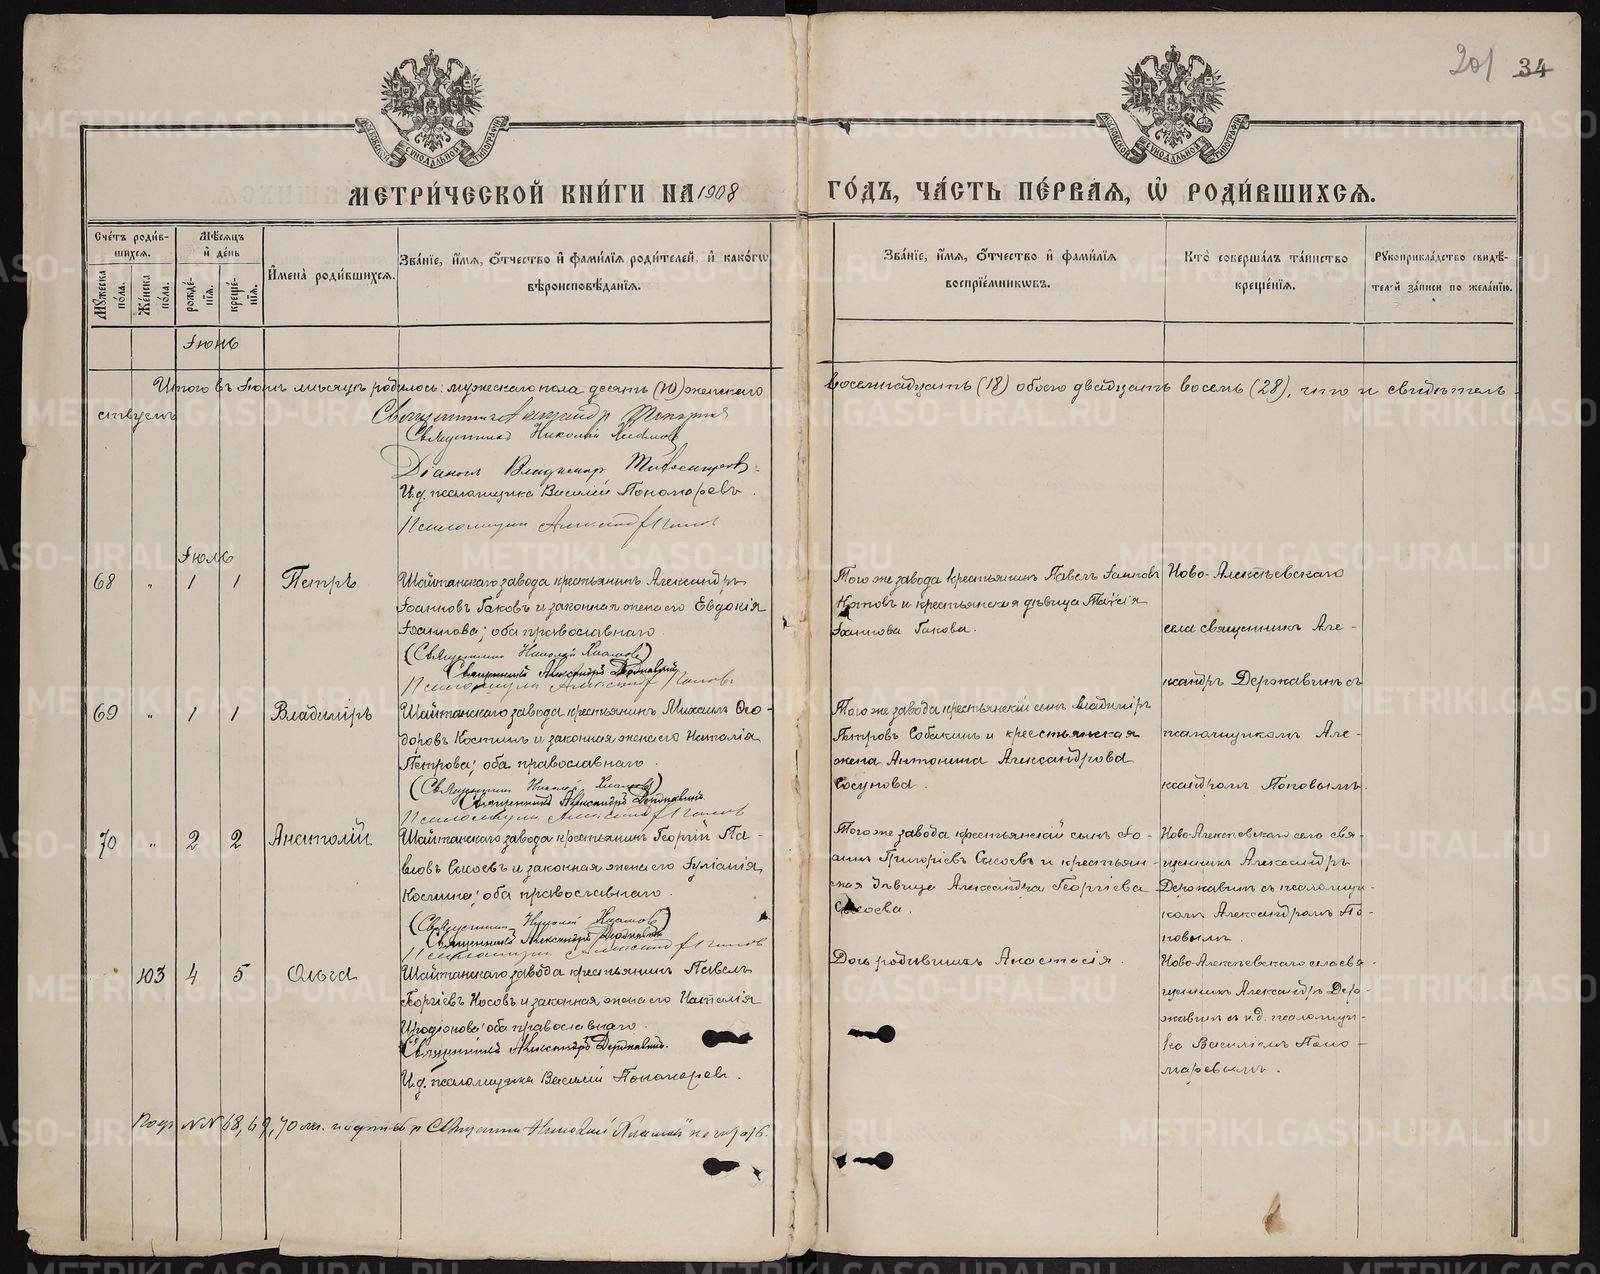 201 34
МОСКОВСКОЙ СѴНОДАЛЬНОЙ ТИПОГРАФІИ
МОСКОВСКОЙ СѴНОДАЛЬНОЙ ТИПОГРАФІИ
МЕТРИ́ЧЕСКОЙ КНИ́ГИ НА 1908
ГО́ДЪ, ЧА́СТЬ ПЕ́РВАѦ, Ѡ҆ РОДИ́ВШИХСѦ.
Сче́тъ роди́в-
шихсѧ.
Мꙋжеска по́ла.
Же́нска по́ла.
Мѣ́сѧцъ
и҆ де́нь
рожде́-
нїѧ.
креще́-
нїѧ.
И҆мена̀ роди́вшихсѧ.
Зва́нїе, и҆́мѧ, ѻ҆́тчество и҆ фами́лїѧ роди́телей, и҆ како́гѡ
вѣроисповѣ́данїѧ.
Зва́нїе, и҆́мѧ, ѻ҆́тчество и҆ фами́лїѧ
воспрїе́мникѡвъ.
Кто̀ соверша́лъ та́инство
креще́нїѧ.
Рꙋкоприкла́дство свидѣ́-
телей за́писи по жела́нїю.
Іюнь
Итого въ Іюнѣ мѣсяцѣ родилось: мужескаго пола десять (10) женскаго
восемнадцать (18) обоего двадцать восемь (28), что и свидѣтель-
ствуемъ
Священникъ Александръ
Священникъ Николай
Діаконъ Владимир
И.д. псаломщика Василій Пономаревъ.
Псаломщикъ Александръ Поповъ
Іюль
68 " 1 1 Петръ
Шайтанскаго завода крестьянинъ Александръ
Іоанновъ Гаковъ и законная жена его Евдокія
Іоаннова; оба православнаго.
(Священникъ Николай)
Священникъ Александръ Державинъ
Псаломщикъ Александръ Поповъ
Того же завода крестьянинъ Павелъ Іоанновъ
и крестьянская дѣвица Таисія
Іоаннова Гакова.
Ново-Алексѣевскаго
села священникъ Але-
ксандръ Державинъ съ
69 " 1 1 Владиміръ
Шайтанскаго завода крестьянинъ Михаилъ Ѳео-
доровъ Костинъ и законная жена его Наталія
Петрова; оба православнаго.
(Священникъ Николай)
Священникъ Александръ Державинъ
Псаломщикъ Александръ Поповъ
Того же завода крестьянскій сынъ Владиміръ
Петровъ Собакинъ и крестьянская
жена Антонина Александрова
Сосунова.
псаломщикомъ Але-
ксандромъ Поповымъ.
70 " 2 2 Анатолій
Шайтанскаго завода крестьянинъ Георгій Па-
вловъ Сысоевъ и законная жена его Іуліанія
Космина; оба православнаго.
(Священникъ Николай)
Священникъ Александръ Державинъ
Псаломщикъ Александръ Поповъ
Того же завода крестьянскій сынъ Іо-
аннъ Григорьевъ Сысоевъ и крестьян-
ская дѣвица Александра Георгіева
Сысоева.
Ново-Алексѣевскаго села свя-
щенникъ Александръ
Державинъ съ псаломщи-
комъ Александромъ По-
повымъ.
103 4 5 Ольга
Шайтанскаго завода крестьянинъ Павелъ
Георгіевъ Носовъ и законная жена его Наталія
Иродіонова; оба православнаго.
Священникъ Александръ Державинъ.
И.д. псаломщика Василій Пономаревъ.
Дочь родившихъ Анастасія.
Ново-Алексѣевскаго села свя-
щенникъ Александръ Дер-
жавинъ съ и.д. псаломщи-
ка Василіемъ Поно-
маревымъ.
Подъ №№ 68, 69, 70 Священникъ Николай
METRIKI.GASO-URAL.RU